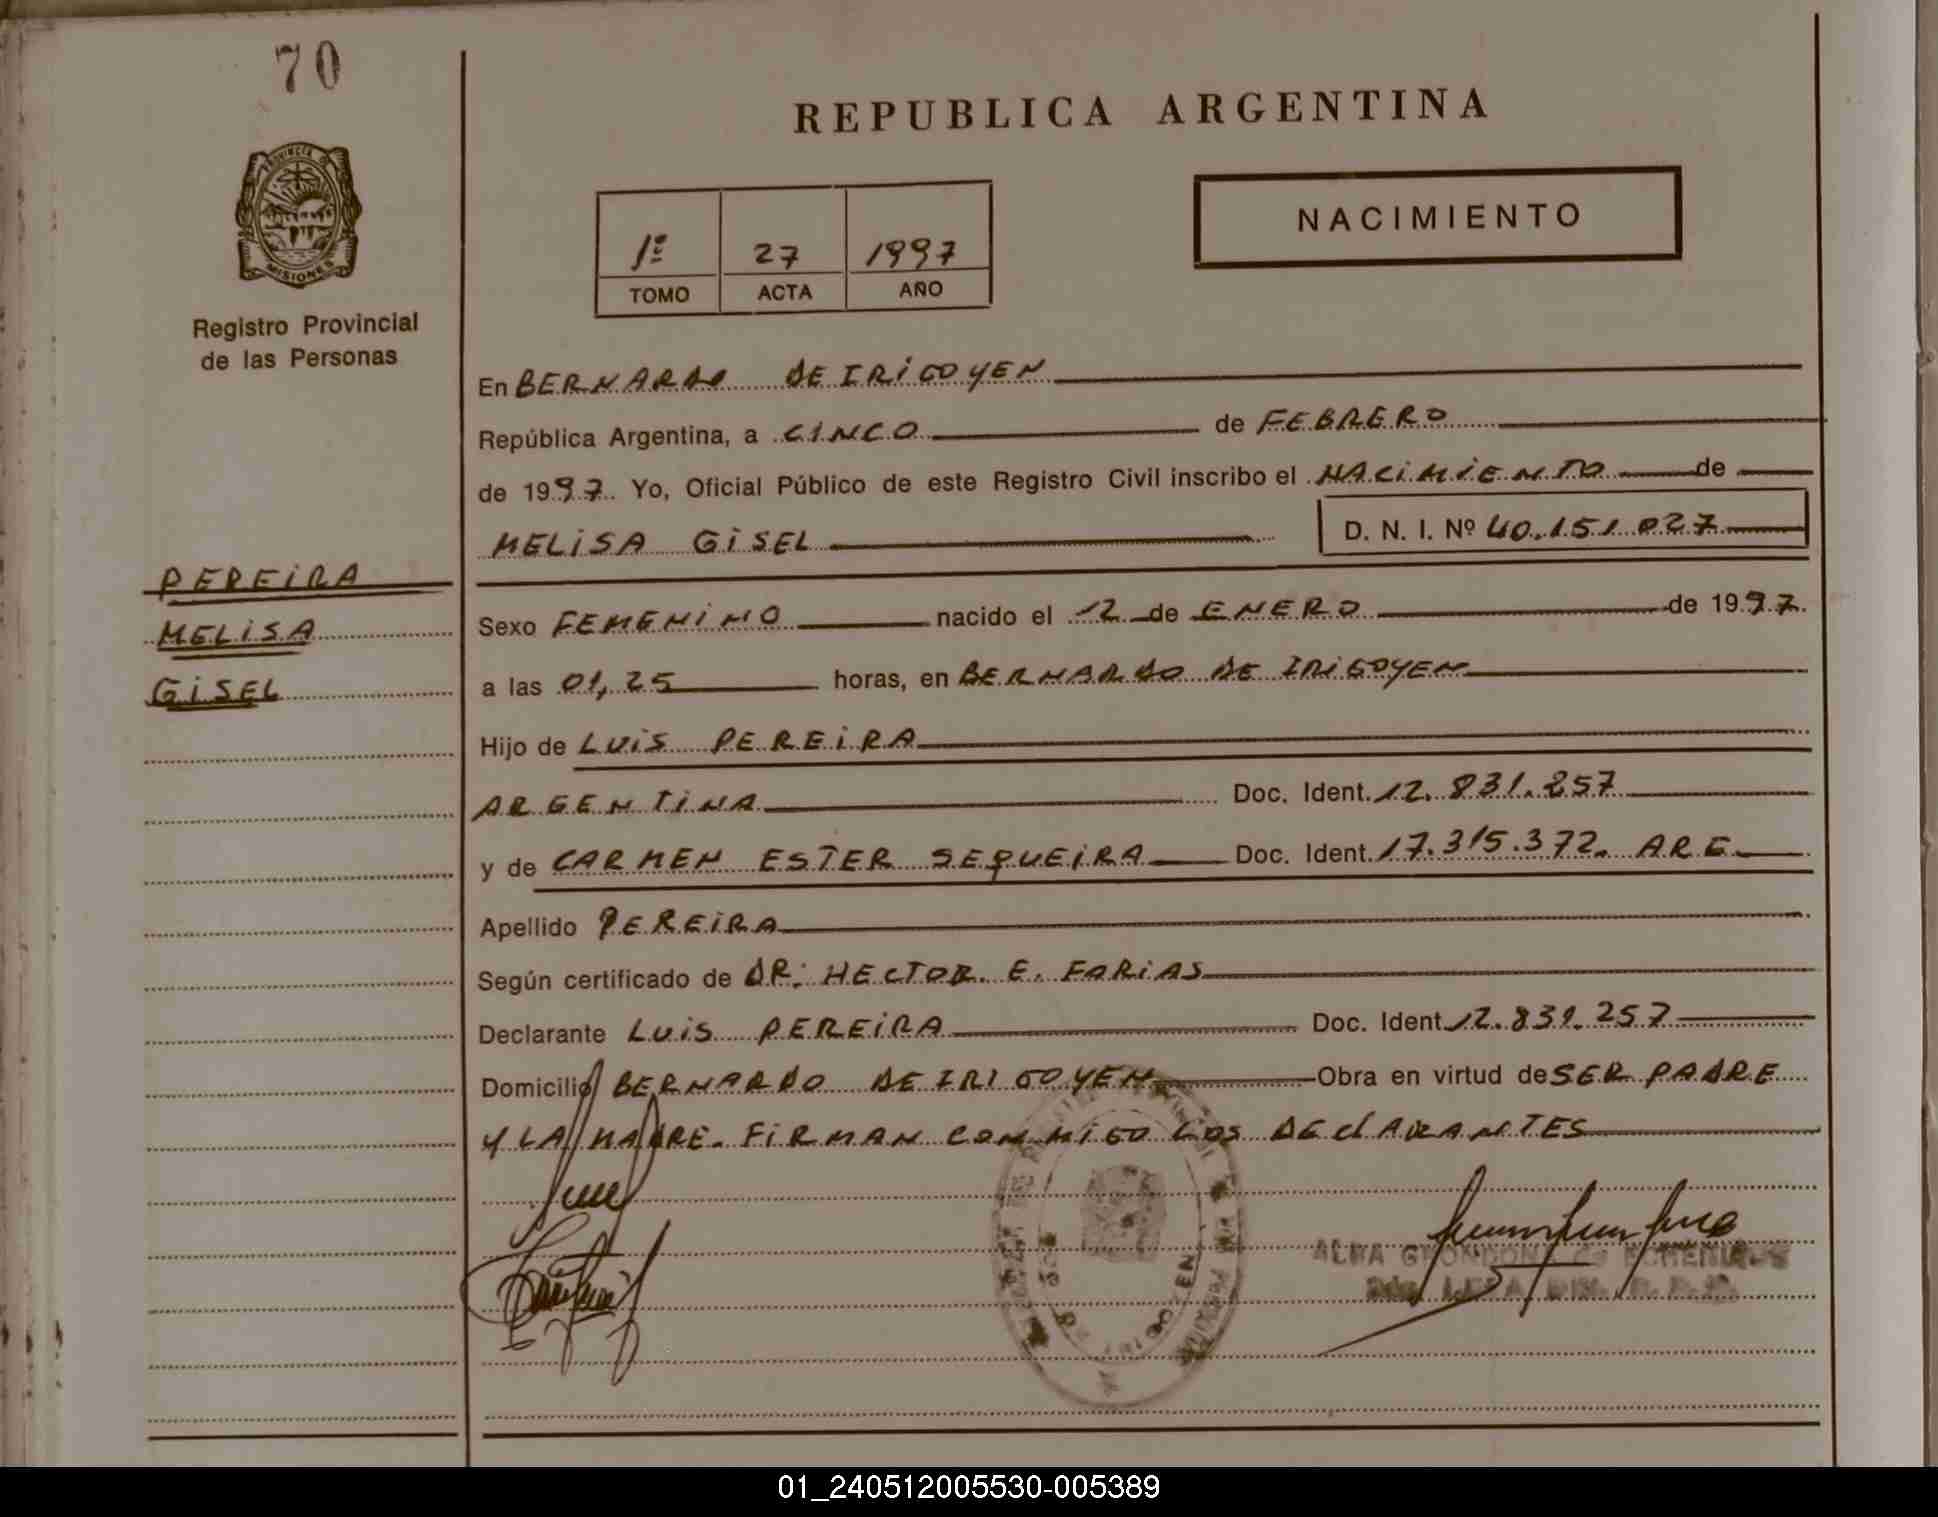 70
REPUBLICA ARGENTINA
PROVINCIA DE
MISIONES
Registro Provincial
de las Personas
1º 27 1997
TOMO ACTA AÑO
NACIMIENTO
En BERNARDO DE IRIGOYEN
República Argentina, a CINCO de FEBRERO
de 1997. Yo, Oficial Público de este Registro Civil inscribo el NACIMIENTO de
MELISA GISEL D. N. I. Nº 40.151.027
PEREIRA
MELISA
GISEL
Sexo FEMENINO nacido el 12 de ENERO de 1997.
a las 01,25 horas, en BERNARDO DE IRIGOYEN
Hijo de LUIS PEREIRA
ARGENTINA Doc. Ident. 12.831.257
y de CARMEN ESTER SEQUEIRA Doc. Ident. 17.315.372. ARG.
Apellido PEREIRA
Según certificado de DR. HECTOR E. FARIAS
Declarante LUIS PEREIRA Doc. Ident. 12.831.257
Domicilio BERNARDO DE IRIGOYEN Obra en virtud de SER PADRE
Y LA MADRE. FIRMAN CONMIGO LOS DECLARANTES
ALBA
01_240512005530-005389